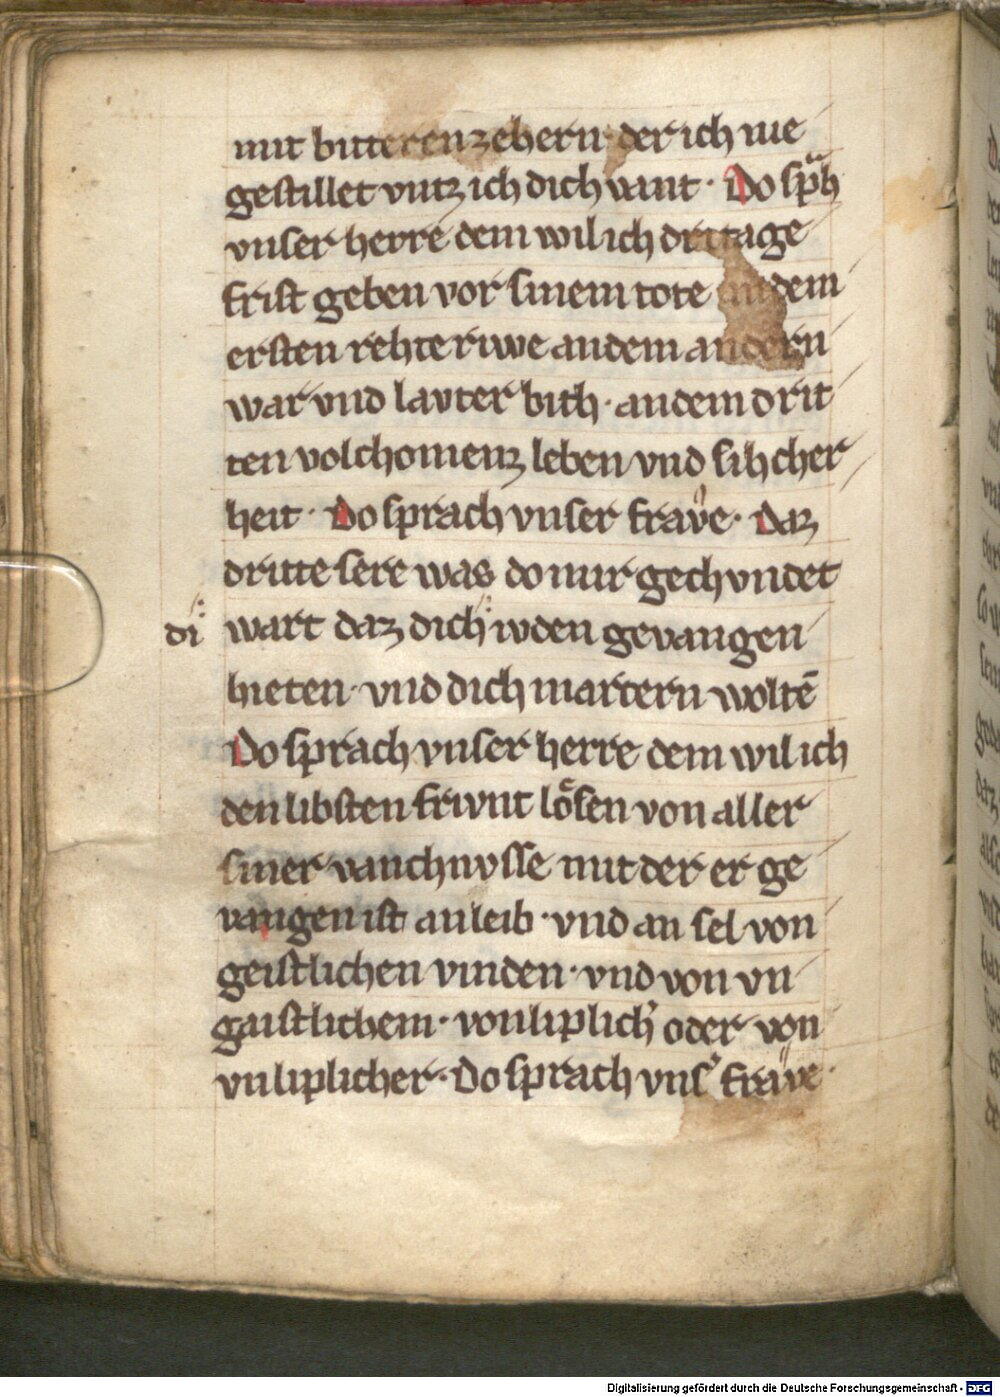 mit bitteren zehern der ich nie
gestillet vntz ich dich vant · Do sp̃h
vnser herre dem wil ich dritage
frist geben vor sinem tote an dem
ersten rehte riwe an dem andern
war vnd lavter biht · an dem drit
ten volchomenz leben vnd sihcher
heit · Do sprach vnser fravͦe · Daz
dritte sere was do mir gechvndet
di wart daz dich ivden gevangen
hieten · vnd dich martern woltē
Do sprach vnser herre dem wil ich
den libsten frivnt loͤsen von aller
siner vanchnvsse mit der er ge
vangen ist an leib · vnd an sel von
geistlichen vinden · vnd von vn
gaistlichem · von liplich̓ oder von
vnliplicher · Do sprach vns̓ fravͦe ·
Digitalisierung gefördert durch die Deutsche Forschungsgemeinschaft - DFG